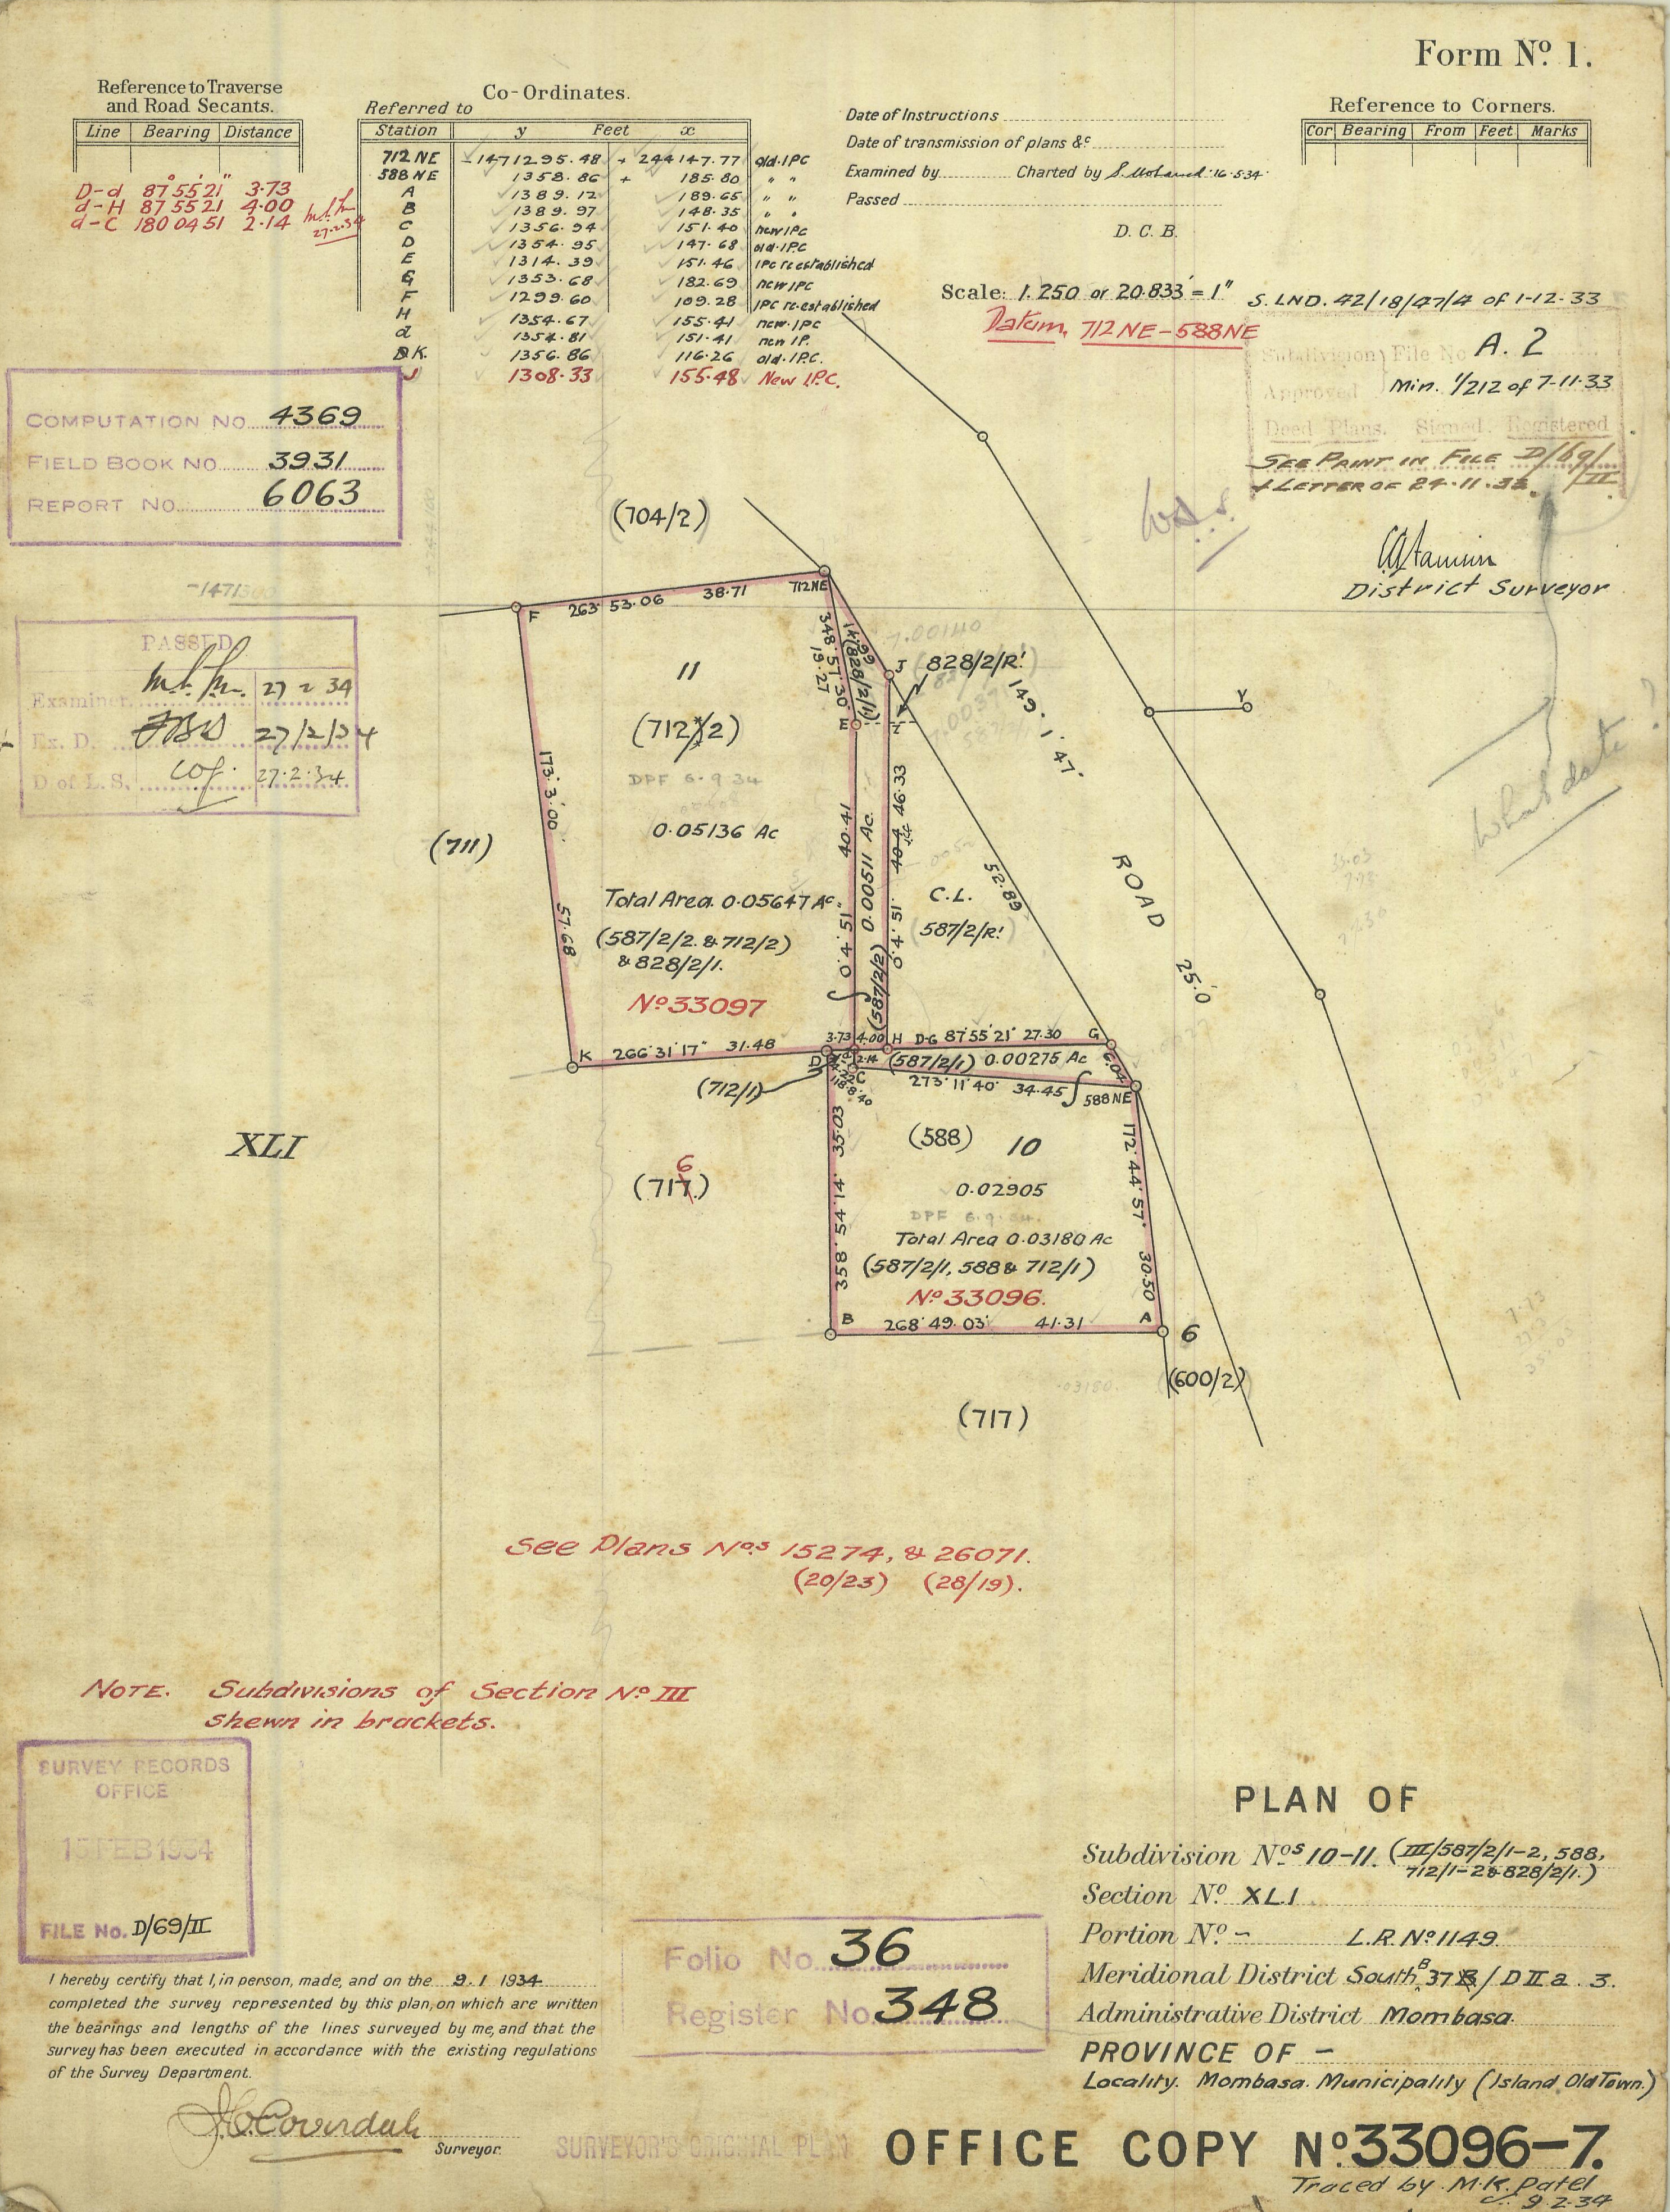 Form Nº 1.
Reference to Traverse
and Road Secants.
Line Bearing Distance
D-d 87°55'21" 3.73
d-H 87 55 21 4.00
d-C 180 04 51 2.14
27.2.34
Co-Ordinates.
Referred to
Station y Feet x
712 NE -1471295.48 + 244147.77 old.IPC
588 NE 1358.86 + 185.80 " "
A 1389.12 189.65 " "
B 1389.97 148.35 " "
C 1356.94 151.40 new IPC
D 1354.95 147.68 old.IPC
E 1314.39 151.46 IPC re established
G 1353.68 182.69 new IPC
F 1299.60 109.28 IPC re.established
H 1354.67 155.41 new.IPC
d 1354.81 151.41 new IP.
K. 1356.86 116.26 old.IPC.
J 1308.33 155.48 New IPC.
Date of Instructions
Date of transmission of plans &c
Examined by Charted by S. Mohamed 16.5.34
Passed
D. C. B.
Reference to Corners.
Cor Bearing From Feet Marks
Scale: 1.250 or 20.833' = 1"
Datum, 712 NE - 588 NE
S. LND. 42/18/47/4 of 1-12-33
Subdivision File No A. 2
Approved Min. 1/212 of 7-11-33
Deed Plans. Signed. Registered
SEE PRINT IN FILE D/69/II
& LETTER OF 24.11.33
District Surveyor
What date?
COMPUTATION NO. 4369
FIELD BOOK NO. 3931
REPORT NO. 6063
PASSED
Examiner 27 2 34
Ex. D. 27/2/34
D of L.S. 27.2.34
-1471300
(704/2)
F 263° 53.06 38.71 712 NE
348° 57' 30"
19.27
14.99
(828/2/1)
J 828/2/R!
149° 1' 47"
Y
11
(712/2)
DPF 6.9 34
0.05136 Ac
173° 3' 00"
57.68
(711)
E
40.41
0° 4' 51"
0.00511 Ac.
(587/2/2)
46.33
0° 4' 51"
C.L.
(587/2/R!)
52.89
ROAD
25.0
Total Area. 0.05647 Ac.
(587/2/2. & 712/2)
& 828/2/1.
Nº 33097
K 266° 31' 17" 31.48
D 3.73 d 4.00 H D-G 87° 55' 21" 27.30 G
2.14 (587/2/1) 0.00275 Ac
6.04
C
4.22
118° 8' 40"
273° 11' 40" 34.45 588 NE
(712/1)
XLI
(716)
35.03
358° 54' 14"
(588) 10
0.02905
DPF 6.9.34.
Total Area 0.03180 Ac
(587/2/1, 588 & 712/1)
Nº 33096.
172° 44' 57"
30.50
B 268° 49' 03" 41.31 A
6
(600/2)
.03180
(717)
See Plans Nos 15274, & 26071.
(20/23) (28/19).
NOTE. Subdivisions of Section Nº III
shewn in brackets.
SURVEY RECORDS
OFFICE
15 FEB 1934
FILE No. D/69/II
I hereby certify that I, in person, made, and on the 9.1 1934
completed the survey represented by this plan, on which are written
the bearings and lengths of the lines surveyed by me, and that the
survey has been executed in accordance with the existing regulations
of the Survey Department.
Surveyor.
Folio No. 36
Register No. 348
PLAN OF
Subdivision Nos 10-11. (III/587/2/1-2, 588,
712/1-2 & 828/2/1.)
Section Nº XLI
Portion Nº - L.R. Nº 1149
Meridional District South B 37 / D II a. 3.
Administrative District Mombasa.
PROVINCE OF -
Locality. Mombasa. Municipality (Island Old Town.)
SURVEYOR'S ORIGINAL PLAN
OFFICE COPY Nº 33096-7.
Traced by M.K. Patel
9.2.34